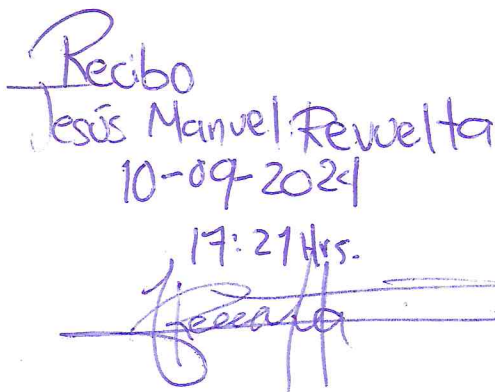 Recibo
Jesús Manuel Revuelta
10-09-2024
17:21 Hrs.